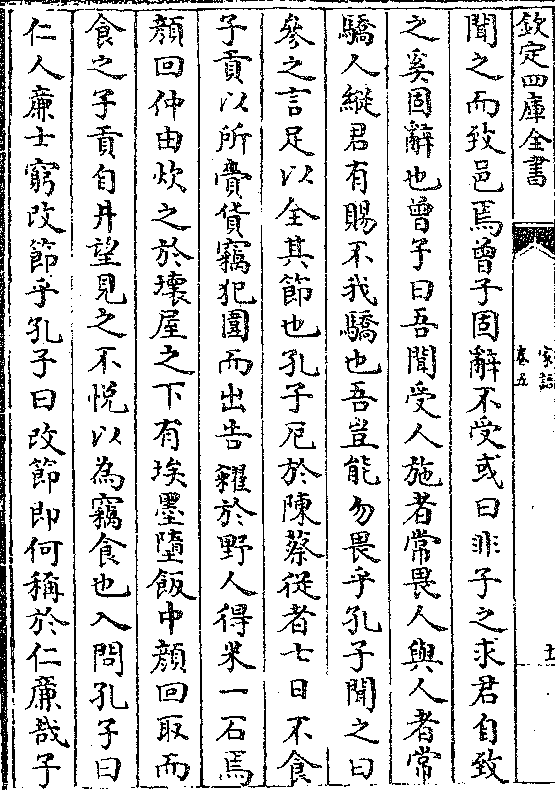 欽定四庫全書
家語
卷五
十
聞之而致邑焉曽子固辭不受或曰非子之求君自致
之奚固辭也曽子曰吾聞受人施者常畏人與人者常
驕人縱君有賜不我驕也吾豈能勿畏乎孔子聞之曰
參之言足以全其節也孔子厄於陳蔡從者七日不食
子貢以所齎貨竊犯圍而出告糴於野人得米一石焉
顔回仲由炊之於壊屋之下有埃墨墮飯中顔回取而
食之子貢自井望見之不悦以為竊食也入問孔子曰
仁人廉士窮改節乎孔子曰改節即何稱於仁廉哉子